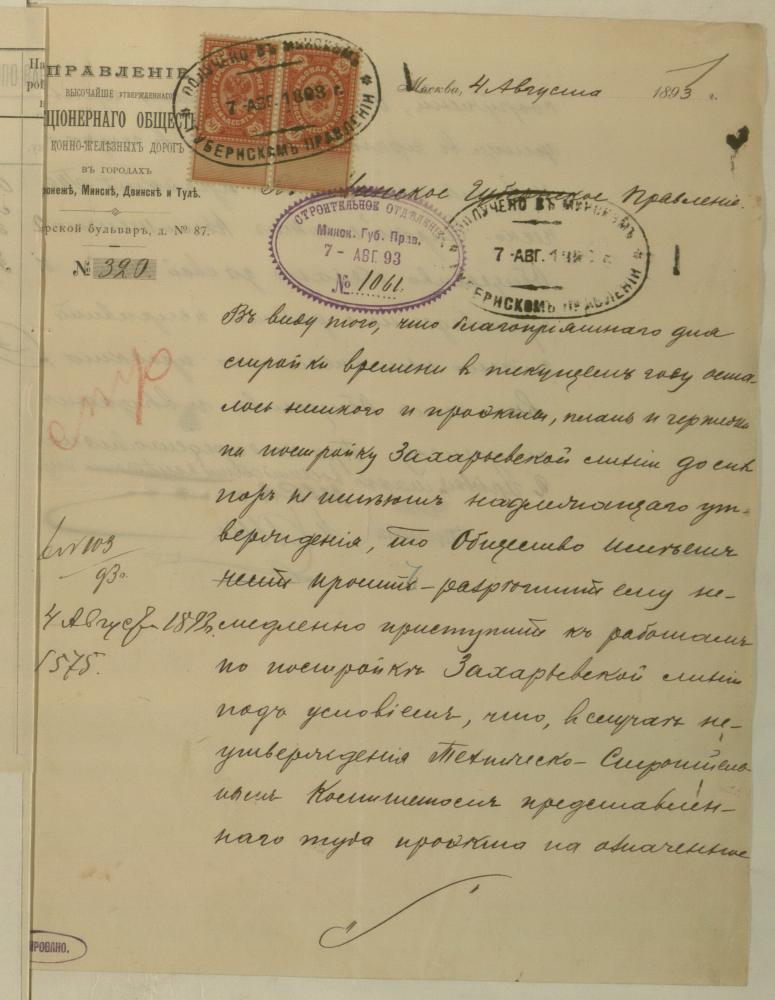 ПРАВЛЕНІЕ
ВЫСОЧАЙШЕ УТВЕРЖДЕННАГО
ЦІОНЕРНАГО ОБЩЕСТ
КОННО-ЖЕЛѢЗНЫХЪ ДОРОГЪ
ВЪ ГОРОДАХЪ
ронежѣ, Минскѣ, Двинскѣ и Тулѣ.
рской бульваръ, д. № 87.
№ 320.
ПОЛУЧЕНО ВЪ МИНСКОМЪ
7-АВГ.1893 г.
ГУБЕРНСКОМЪ ПРАВЛЕНІИ
Москва, 4 Августа 1893 г.
Минское Губернское Правленіе.
СТРОИТЕЛЬНОЕ ОТДѢЛЕНІЕ
Минск. Губ. Прав.
7- АВГ 93
№ 1061.
ПОЛУЧЕНО ВЪ МИНСКОМЪ
7-АВГ.1893 г.
ГУБЕРНСКОМЪ ПРАВЛЕНІИ
Въ виду того, что благопріятнаго для
стройки времени в текущемъ году оста-
лось немного и проэкты, планъ и чертежи
на постройку Захарьевской линіи до сихъ
поръ не имѣютъ надлежащаго ут-
вержденія, то Общество имѣетъ
честь просить разрѣшить ему не-
медленно приступить къ работамъ
по постройкѣ Захарьевской линіи
подъ условіемъ, что, в случаѣ не-
утвержденія Техническо-Строитель-
нымъ Комитетомъ представлен-
наго туда проэкта на означенное
стр
103
93
4 Август 1893 г.
1575.
РОВАНО.